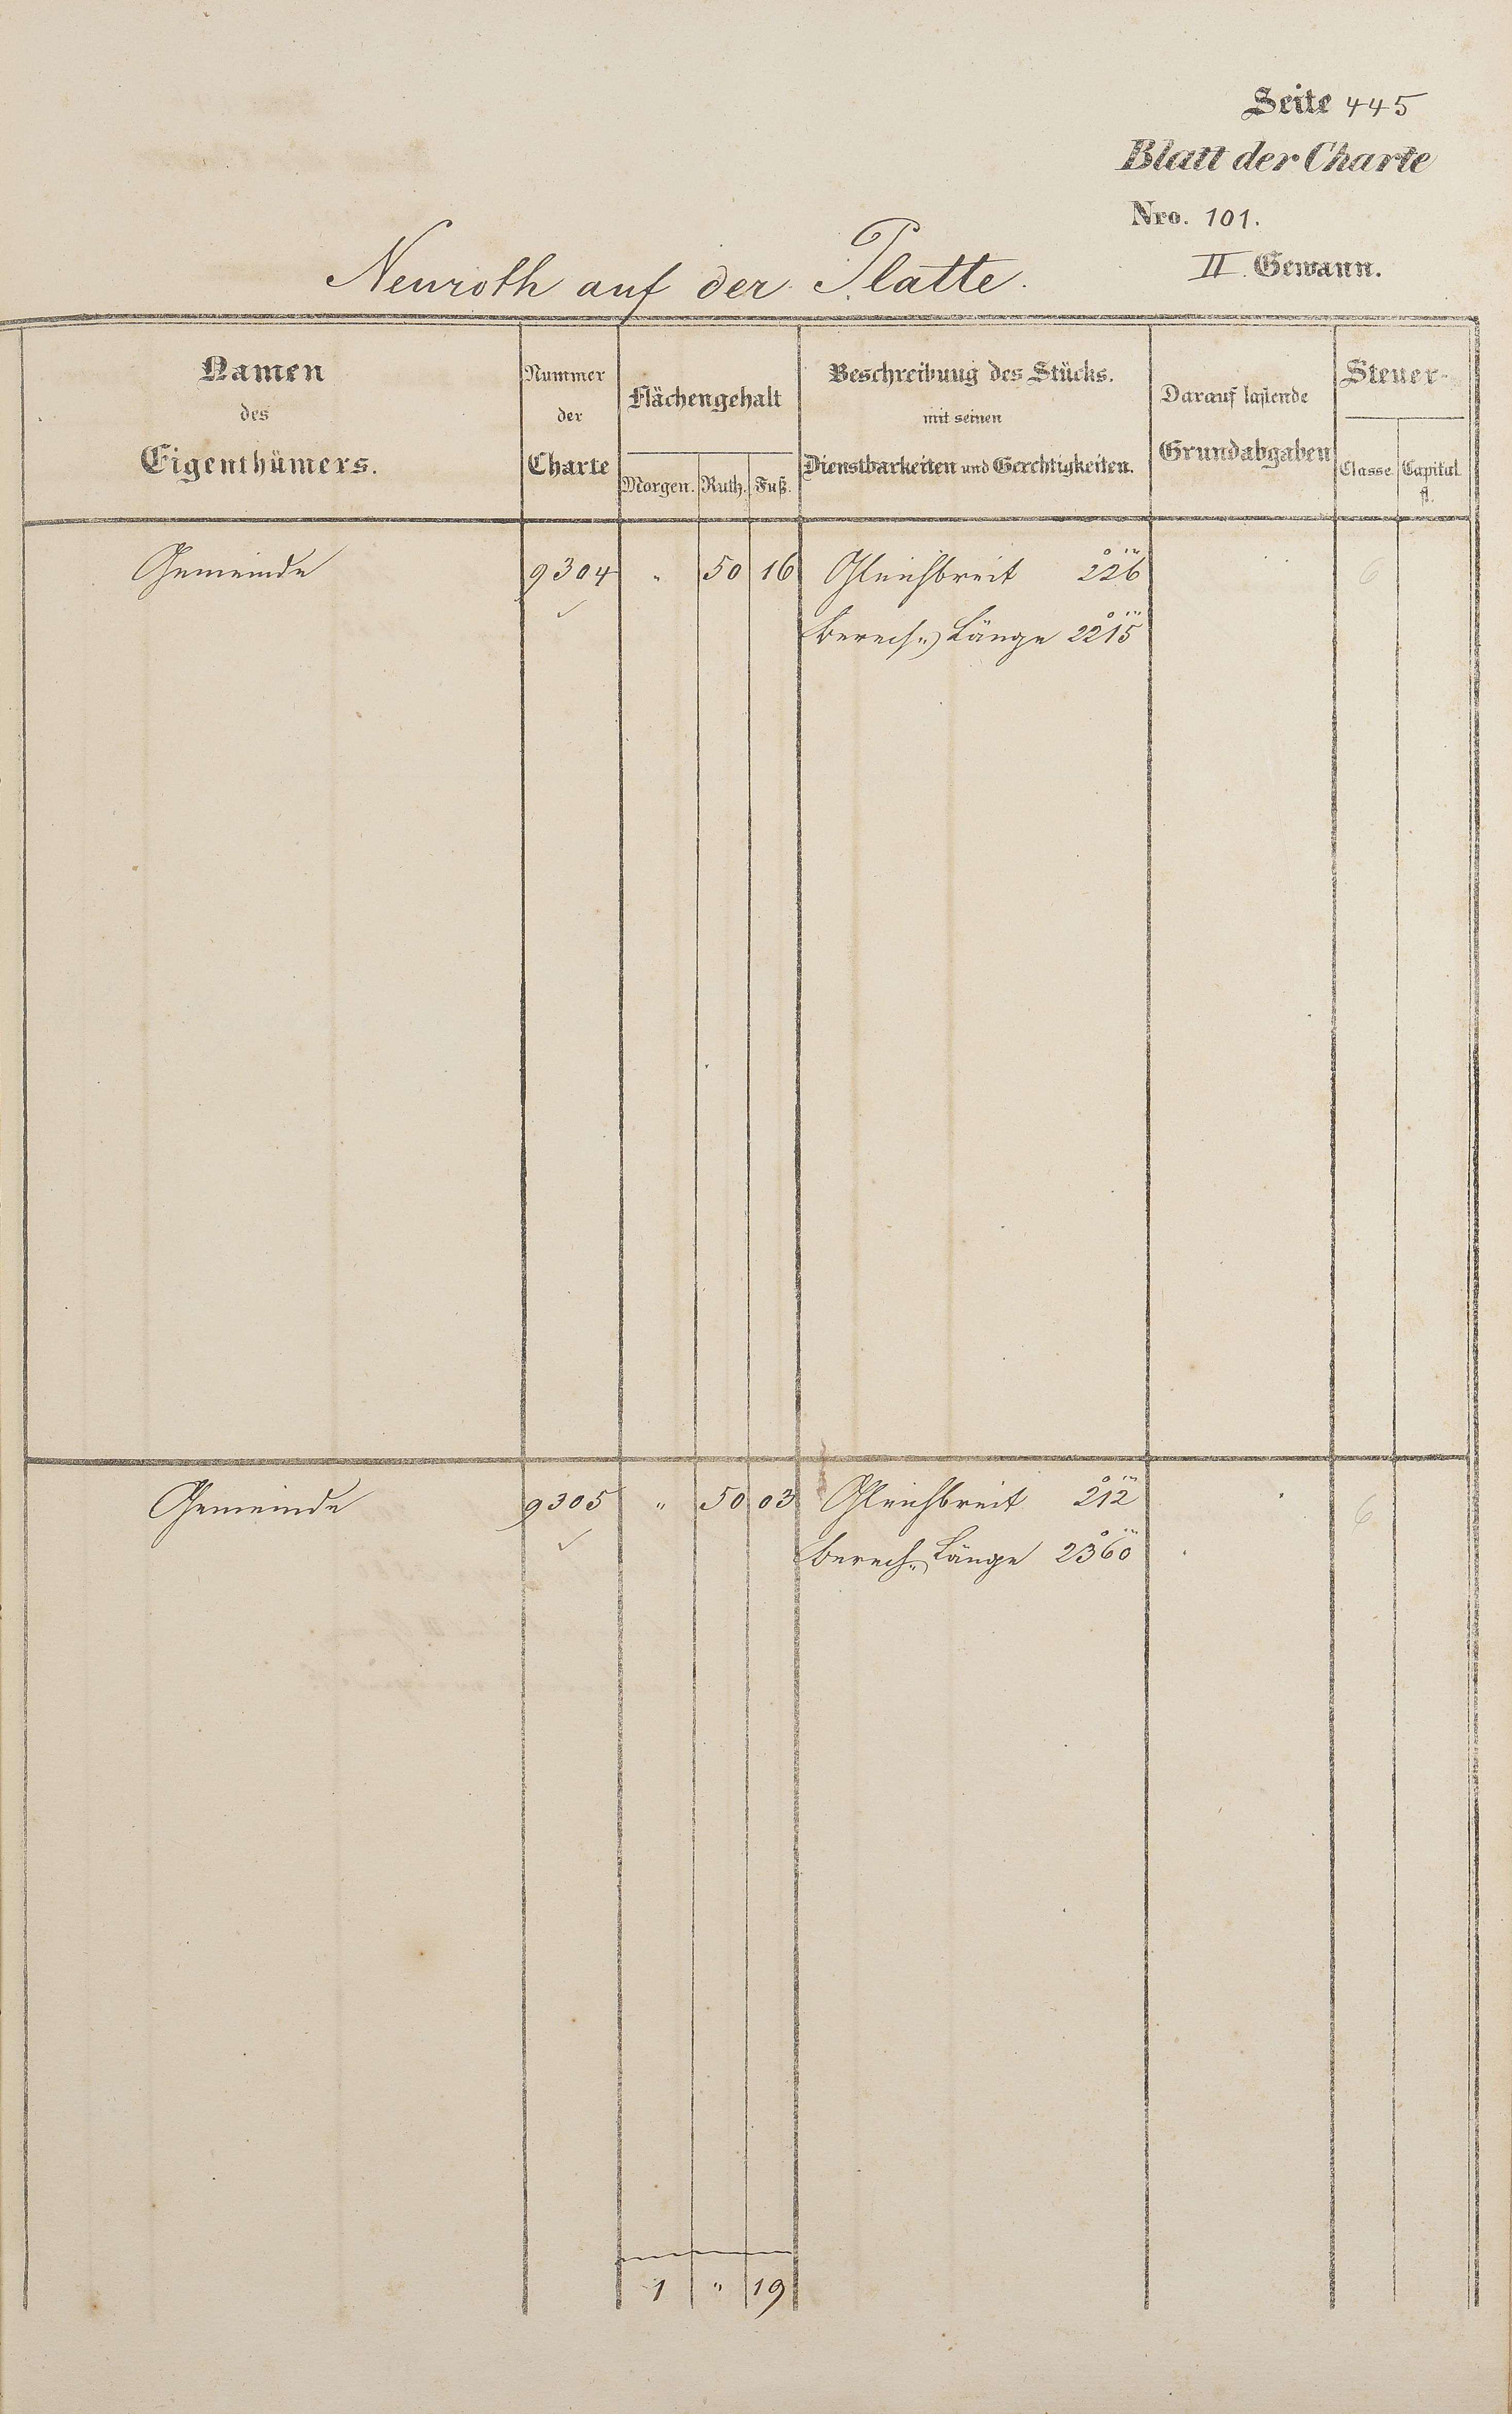 Seite 445
Blatt der Charte
Nro. 101.
II. Gewann.
Neuroth auf der Platte.
Namen des Eigenthümers.
Nummer der Charte
Flächengehalt
Morgen. Ruth. Fuß.
Beschreibung des Stücks.
mit seinen
Dienstbarkeiten und Gerechtigkeiten.
Darauf lastende
Grundabgaben
Steuer-
Classe Capital
fl.
Gemeinde 9304 " 50 16 Gleichbreit 226 6
berech. Länge 2215
Gemeinde 9305 " 50 03 Gleichbreit 212 6
berech. Länge 2360
1 " 19